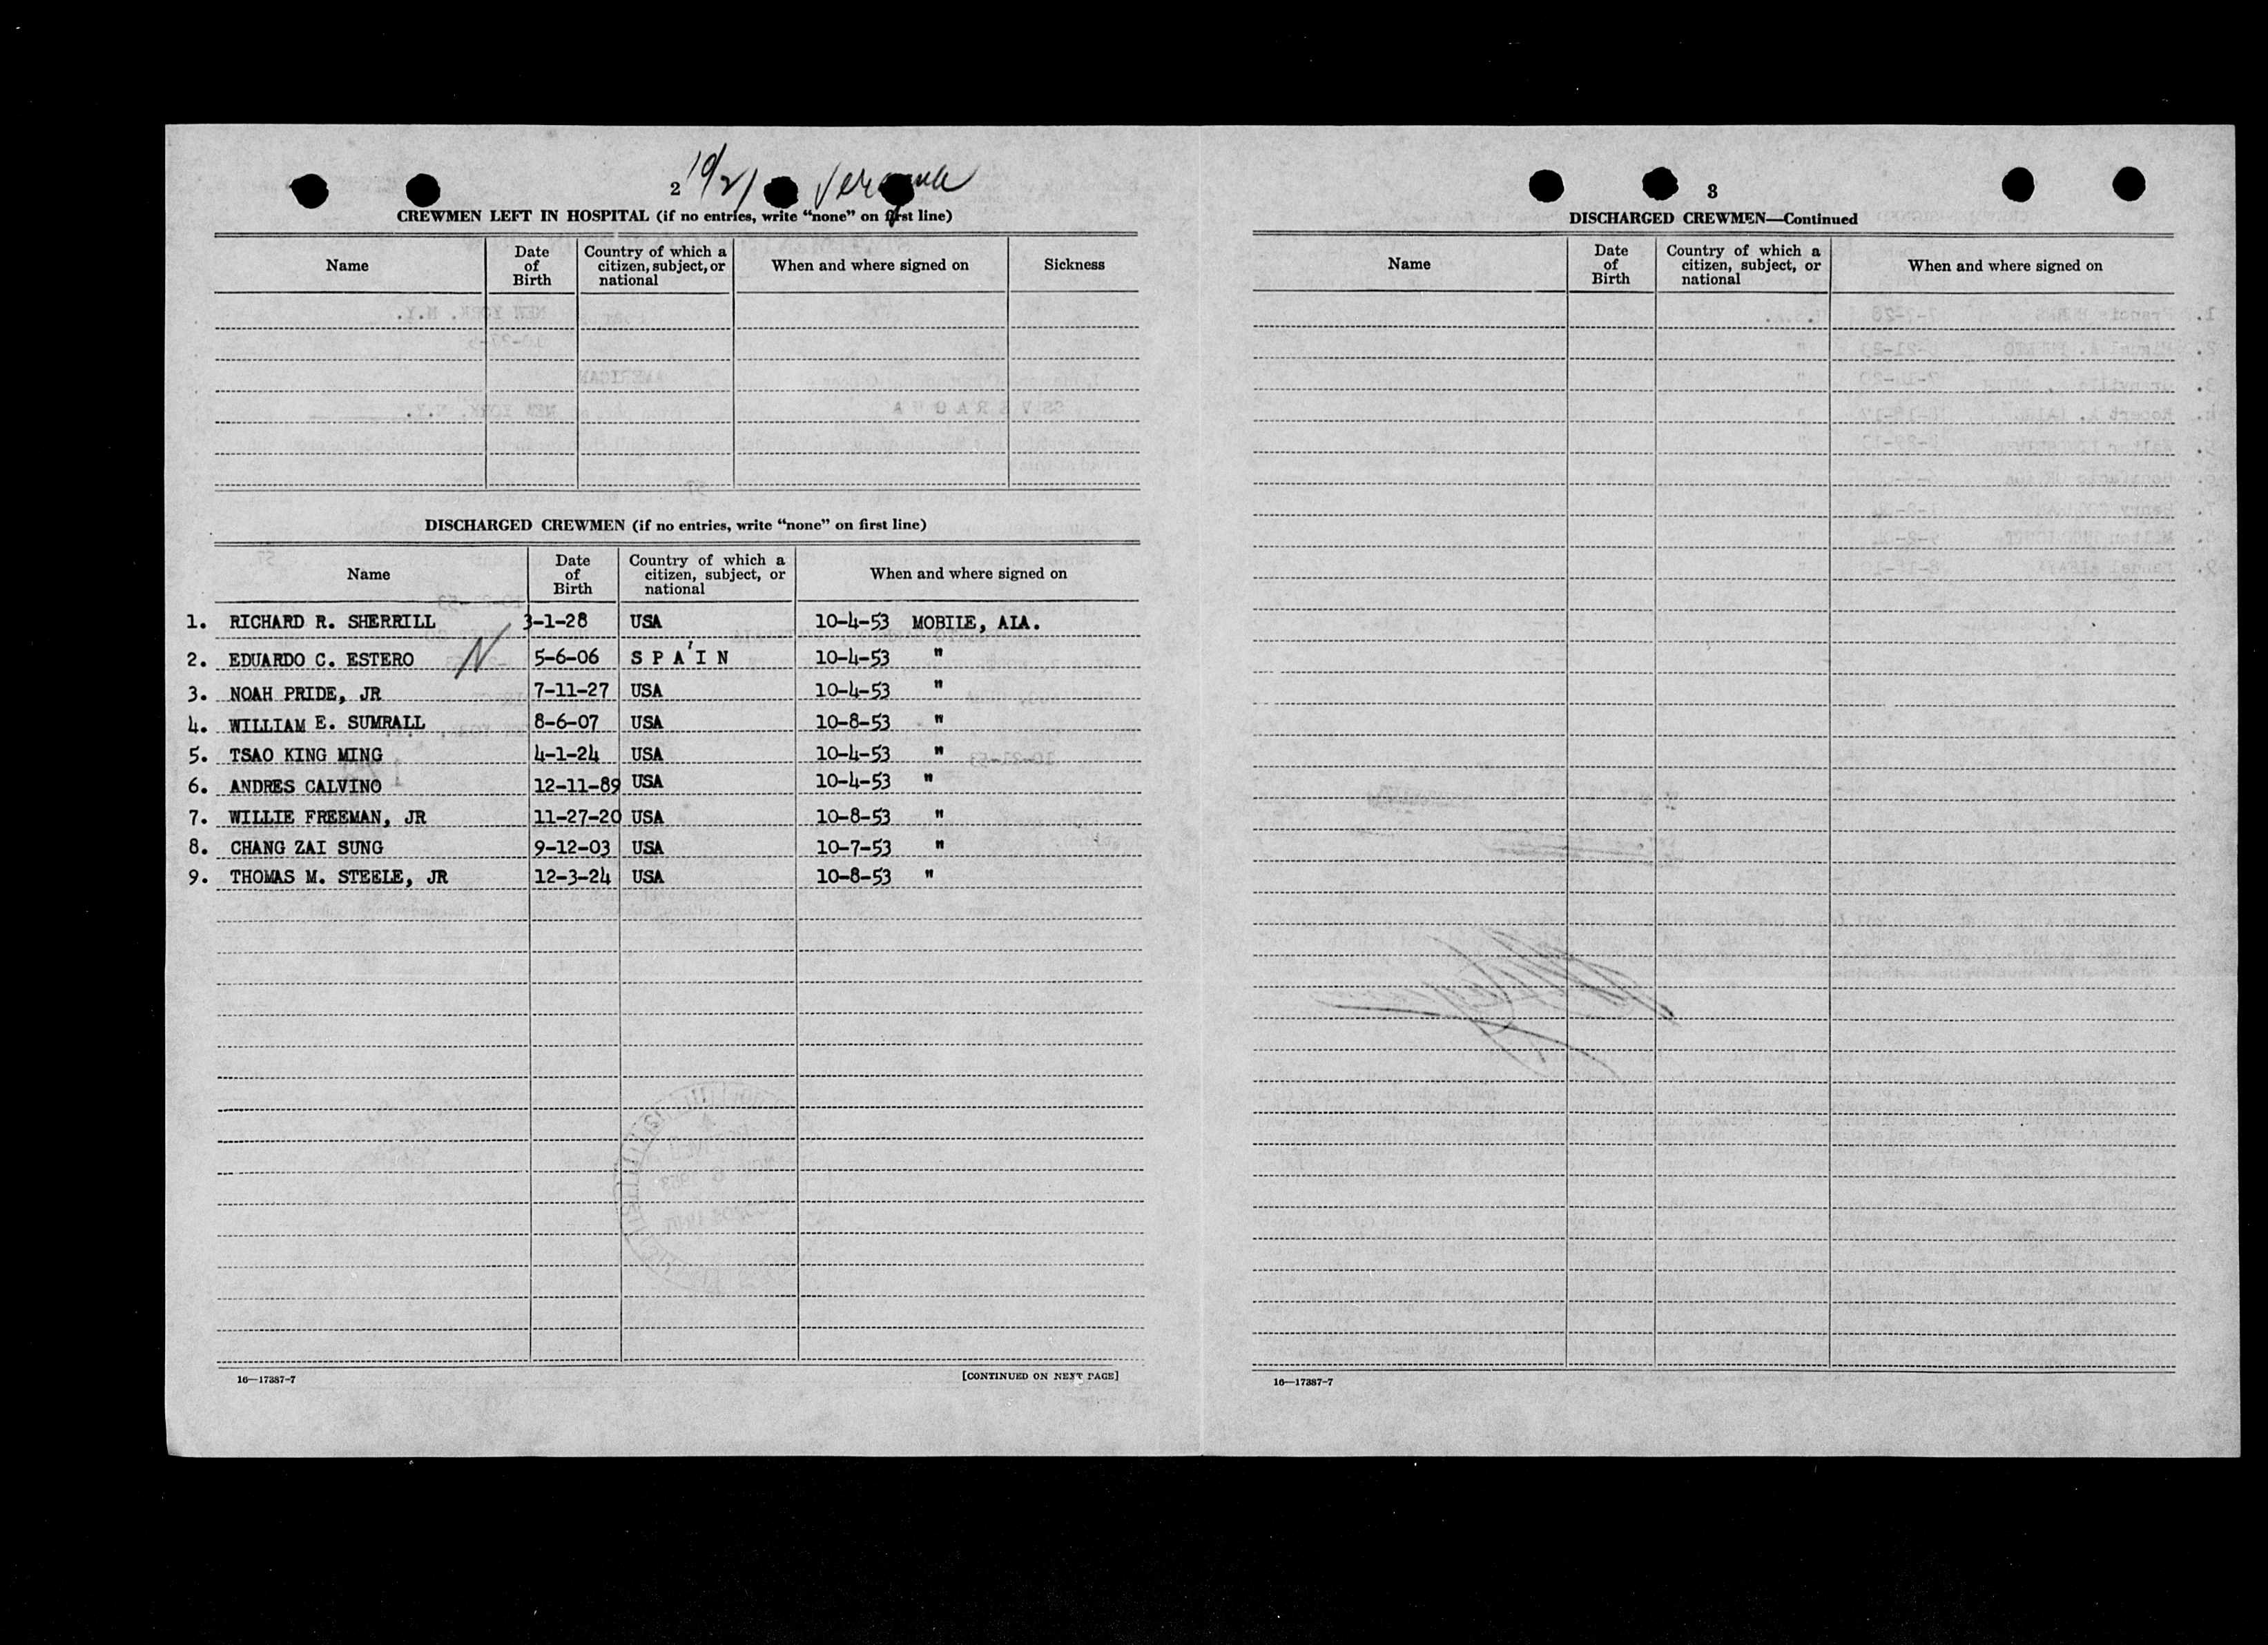 2 10/21 Veragua
CREWMEN LEFT IN HOSPITAL (if no entries, write “none” on first line)
Name Date of Birth Country of which a citizen, subject, or national When and where signed on Sickness
DISCHARGED CREWMEN (if no entries, write “none” on first line)
Name Date of Birth Country of which a citizen, subject, or national When and where signed on
1. RICHARD R. SHERRILL 3-1-28 USA 10-4-53 MOBILE, ALA.
2. EDUARDO C. ESTERO N 5-6-06 S P A I N 10-4-53 "
3. NOAH PRIDE, JR 7-11-27 USA 10-4-53 "
4. WILLIAM E. SUMRALL 8-6-07 USA 10-8-53 "
5. TSAO KING MING 4-1-24 USA 10-4-53 "
6. ANDRES CALVINO 12-11-89 USA 10-4-53 "
7. WILLIE FREEMAN, JR 11-27-20 USA 10-8-53 "
8. CHANG ZAI SUNG 9-12-03 USA 10-7-53 "
9. THOMAS M. STEELE, JR 12-3-24 USA 10-8-53 "
16—17387-7 [CONTINUED ON NEXT PAGE]
3
DISCHARGED CREWMEN—Continued
Name Date of Birth Country of which a citizen, subject, or national When and where signed on
16—17387-7